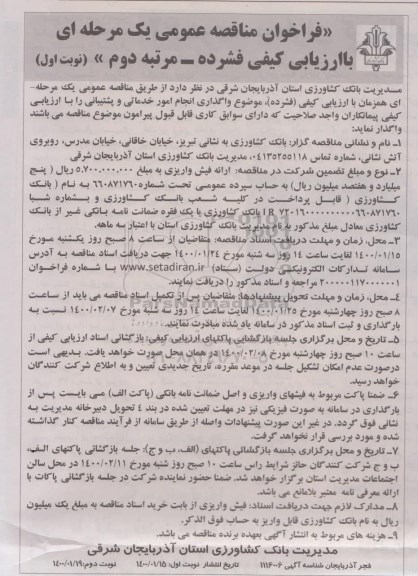 «فراخوان مناقصه عمومی یک مرحله ای
باارزیابی کیفی فشرده ــ مرتبه دوم » (نوبت اول)
مـدیریت بانک کشاورزی استان آذربایجان شرقی در نظر دارد از طریق مناقصه عمومی یک مرحله-
ای همزمان با ارزیابی کیفی (فشرده)، موضوع واگذاری انجام امور خدماتی و پشتیبانی را با ارزیابی
کیفی پیمانکاران واجد صلاحیت که دارای سوابق کاری قابل قبول پیرامون موضوع مناقصه می باشند
واگذار نماید:
۱ـ نام و نشانی مناقصه گزار: بانک کشاورزی به نشانی تبریز، خیابان خاقانی، خیابان مدرس، روبروی
آتش نشانی، شماره تماس ۰۴۱۳۵۲۵۵۱۱۸، مدیریت بانک کشاورزی استان آذربایجان شرقی
۲ـ نوع و مبلغ تضمین شرکت در مناقصه: ارائه فیش واریزی به مبلغ ۵,۷۰۰,۰۰۰,۰۰۰ ریال ( پنج
میلیارد و هفتصد میلیون ریال) به حساب سپرده عمومی تحت شماره ۶۶۰۸۷۱۷۶۰ به نـام ( بانـک
کشـاورزی ( قابـل پرداخت در کلیـه شعب بانـک کشـاورزی و بـشماره شبا
بانک کشاورزی یا یک فقره ضمانت نامه بـانکی غیر از بانـک
کشاورزی معادل مبلغ مذکور به نام مدیریت بانک کشاورزی استان با اعتبار سه ماهه.
۳ـ محل، زمان و مهلت دریافت اسناد مناقصه: متقاضیان از ساعت ۸ صبح روز یکـشنبه مـورخ
۱۴۰۰/۰۱/۱۵ لغایت ساعت ۱۴ روز سه شنبه مورخ ۱۴۰۰/۰۱/۲۴ جهت دریافت اسناد مناقصه به آدرس
سامانه تدارکات الکترونیکی دولت (ستاد) www.setadiran.ir با شماره فراخوان
۲۰۰۰۰۰۱۱۷۰۰۰۰۰۱ مراجعه و اسناد مذکور را دریافت نمایند.
۴ـ محل، زمان و مهلت تحویل پیشنهادها: متقاضیان پس از تکمیل اسناد مناقصه می باید از ساعت
۸ صبح روز چهارشنبه مورخ ۱۴۰۰/۰۱/۲۵ لغایت ساعت ۱۴ روز سه شنبه مورخ ۱۴۰۰/۰۲/۰۷ نسبت به
بارگذاری و ثبت اسناد مذکور در سامانه یاد شده مبادرت نمایند.
۵ـ تاریخ و محل برگزاری جلسه بازگشایی پاکتهای ارزیابی کیفی: بازگشائی اسناد ارزیابی کیفی از
ساعت ۱۰ صبح روز چهارشنبه مورخ ۱۴۰۰/۰۲/۰۸ در همان محل صورت خواهد یافت. بدیهی است
درصورت عدم امکان تشکیل جلسه در موعد مقرره، تاریخ جدیدی تعیین و به اطلاع شرکت کنندگان
خواهد رسید.
۶ـ ضمنا پاکت مربوط به فیشهای واریزی و اصل ضمانت نامه بانکی (پاکت الف) مـی بایـست پـس از
بارگذاری در سامانه به صورت فیزیکی نیز در مهلت تعیین شده در بند ۴ تحویل دبیرخانه مدیریت به
نشانی فوق گردد. در غیر این صورت پیشنهادات واصله از طریق سامانه از فرآیند مناقصه کنار گذاشته
شده و مورد بررسی قرار نخواهد گرفت.
۷ـ تاریخ و محل برگزاری جلسه بازگشائی پاکتهای (الف، ب و ج): جلسه بازگشائی پاکتهای الـف،
ب و ج شرکت کنندگان حائز شرایط راس ساعت ۱۰ صبح روز شنبه مورخ ۱۴۰۰/۰۲/۱۱ در محل سالن
اجتماعات مدیریت استان برگزار خواهد شد. ضمنا حضور نماینده شرکت در جلسه بازگشائی پاکات با
ارائه معرفی نامه معتبر بلامانع می باشد.
۸ـ مدارک لازم جهت دریافت اسناد: فیش واریزی از بابت خرید اسناد مناقصه به مبلغ یک میلیون
ریال به نام بانک کشاورزی قابل واریز به حساب فوق الذکر.
۹ـ هزینه های مربوط به انتشار آگهی بعهده برنده مناقصه می باشد.
مدیریت بانک کشاورزی استان آذربایجان شرقی
فجر آذربایجان شناسه آگهی ۱۱۱۶۰۰۶ تاریخ انتشار نوبت اول: ۱۴۰۰/۰۱/۱۵ نوبت دوم: ۱۴۰۰/۰۱/۱۹